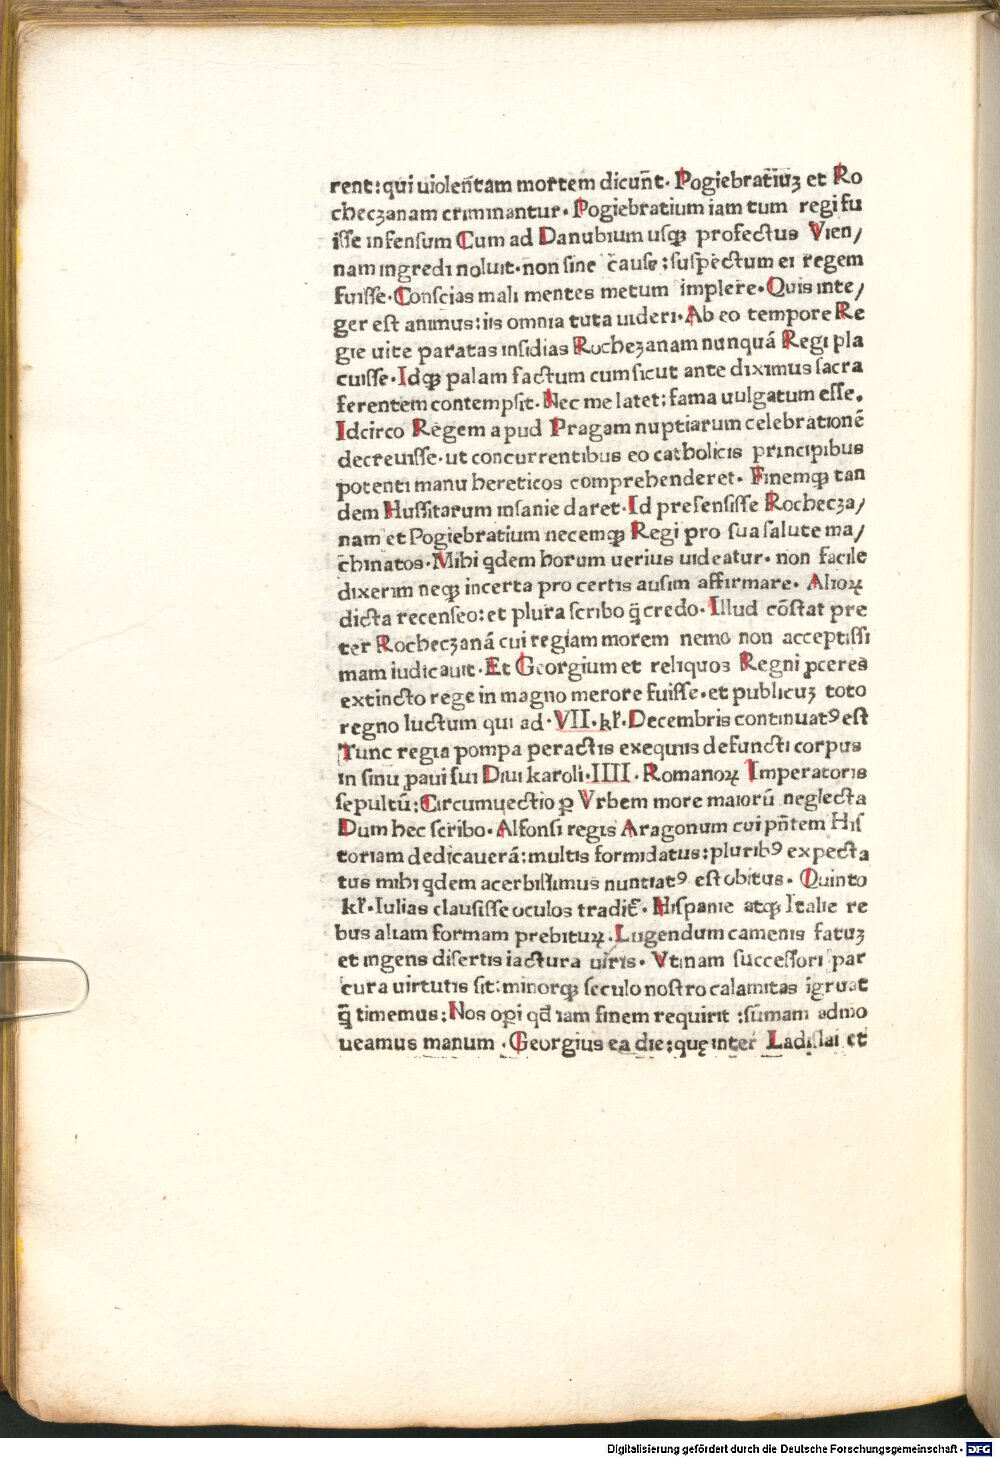 rent:qui uiolen̄tam mortem dicun̄t. Pogiebratiuʒ et Ro
checʒanam criminantur. Pogiebratium iam tum regi fu
isſe infenſum Cum ad Danubium uſqꝫ profectus Vien/
nam ingredi noluit. non ſine cauſe: ſuſpectum ei regem
fuiſſe. Conſcias mali mentes metum implere. Quis inte/
ger eſt animus: iis omnia tuta uideri. Ab eo tempore Re
gie uite paratas inſidias Rocheʒanam nunquā Regi pla
cuiſſe. Idqꝫ palam factum cum ſicut ante diximus ſacra
ferentem contempſit. Nec me latet: fama uulgatum eſſe.
Idcirco Regem apud Pragam nuptiarum celebrationē
decreuiſſe. ut concurrentibus eo catholicis principibus
potenti manu hereticos comprehenderet. Finemqꝫ tan
dem Huſſitarum inſanie daret. Id preſenſiſſe Rochecʒa/
nam et Pogiebratium necemqꝫ Regi pro ſua ſalute ma/
chinatos. Mihi qdem horum uerius uideatur. non facile
dixerim neqꝫ incerta pro certis auſim affirmare. Alioꝝ
dicta recenſeo: et plura ſcribo q̄ credo. Illud cōſtat pre
ter Rochecʒanā cui regiam morem nemo non acceptiſſi
mam iudicauit. Et Georgium et reliquos Regni ꝓceres
extincto rege in magno merore fuiſſe. et publicuʒ toto
regno luctum qui ad. VII. kl̄. Decembris continuatꝰ eſt
Tunc regia pompa peractis exequiis defuncti corpus
in ſinu ꝓaui ſui Diui karoli. IIII. Romanoꝝ Imperatoris
ſepultū: Circumuectio ꝑ Vrbem more maiorū neglecta
Dum hec ſcribo. Alfonſi regis Aragonum cui pn̄tem Hiſ
toriam dedicauerā: multis formidatus: pluribꝰ expecta
tus mihi qdem acerbiſſimus nuntiatꝰ eſt obitus. Quinto
kl̄. Iulias clauſiſſe oculos tradit̄. Hiſpanie atqꝫ Italie re
bus aliam formam prebituꝝ. Lugendum camenis fatuʒ
et ingens diſertis iactura uiris. Vtinam ſucceſſori par
cura uirtutis ſit: minorqꝫ ſeculo noſtro calamitas igruat
q̄ timemus: Nos oꝑi qd̄ iam finem requirit: ſūmam admo
ueamus manum. Georgius ea die: quę inter Ladiſlai et
Digitalisierung gefördert durch die Deutsche Forschungsgemeinschaft - DFG